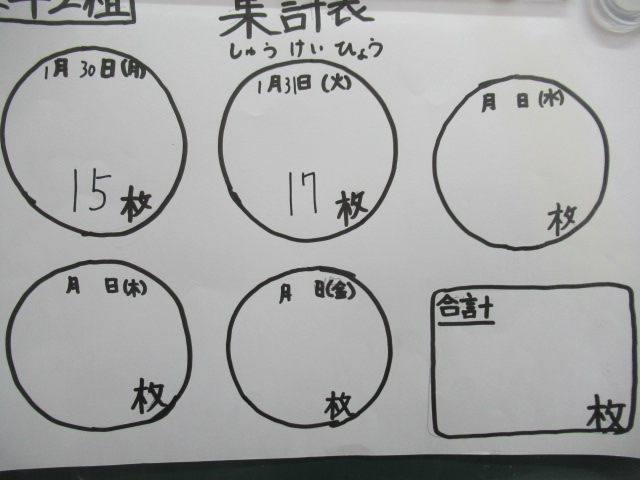 集計表
しゅう けい ひょう
1月 30日(月)
15 枚
1月 31日(火)
17 枚
月 日(水)
枚
月 日(木)
枚
月 日(金)
枚
合計
枚